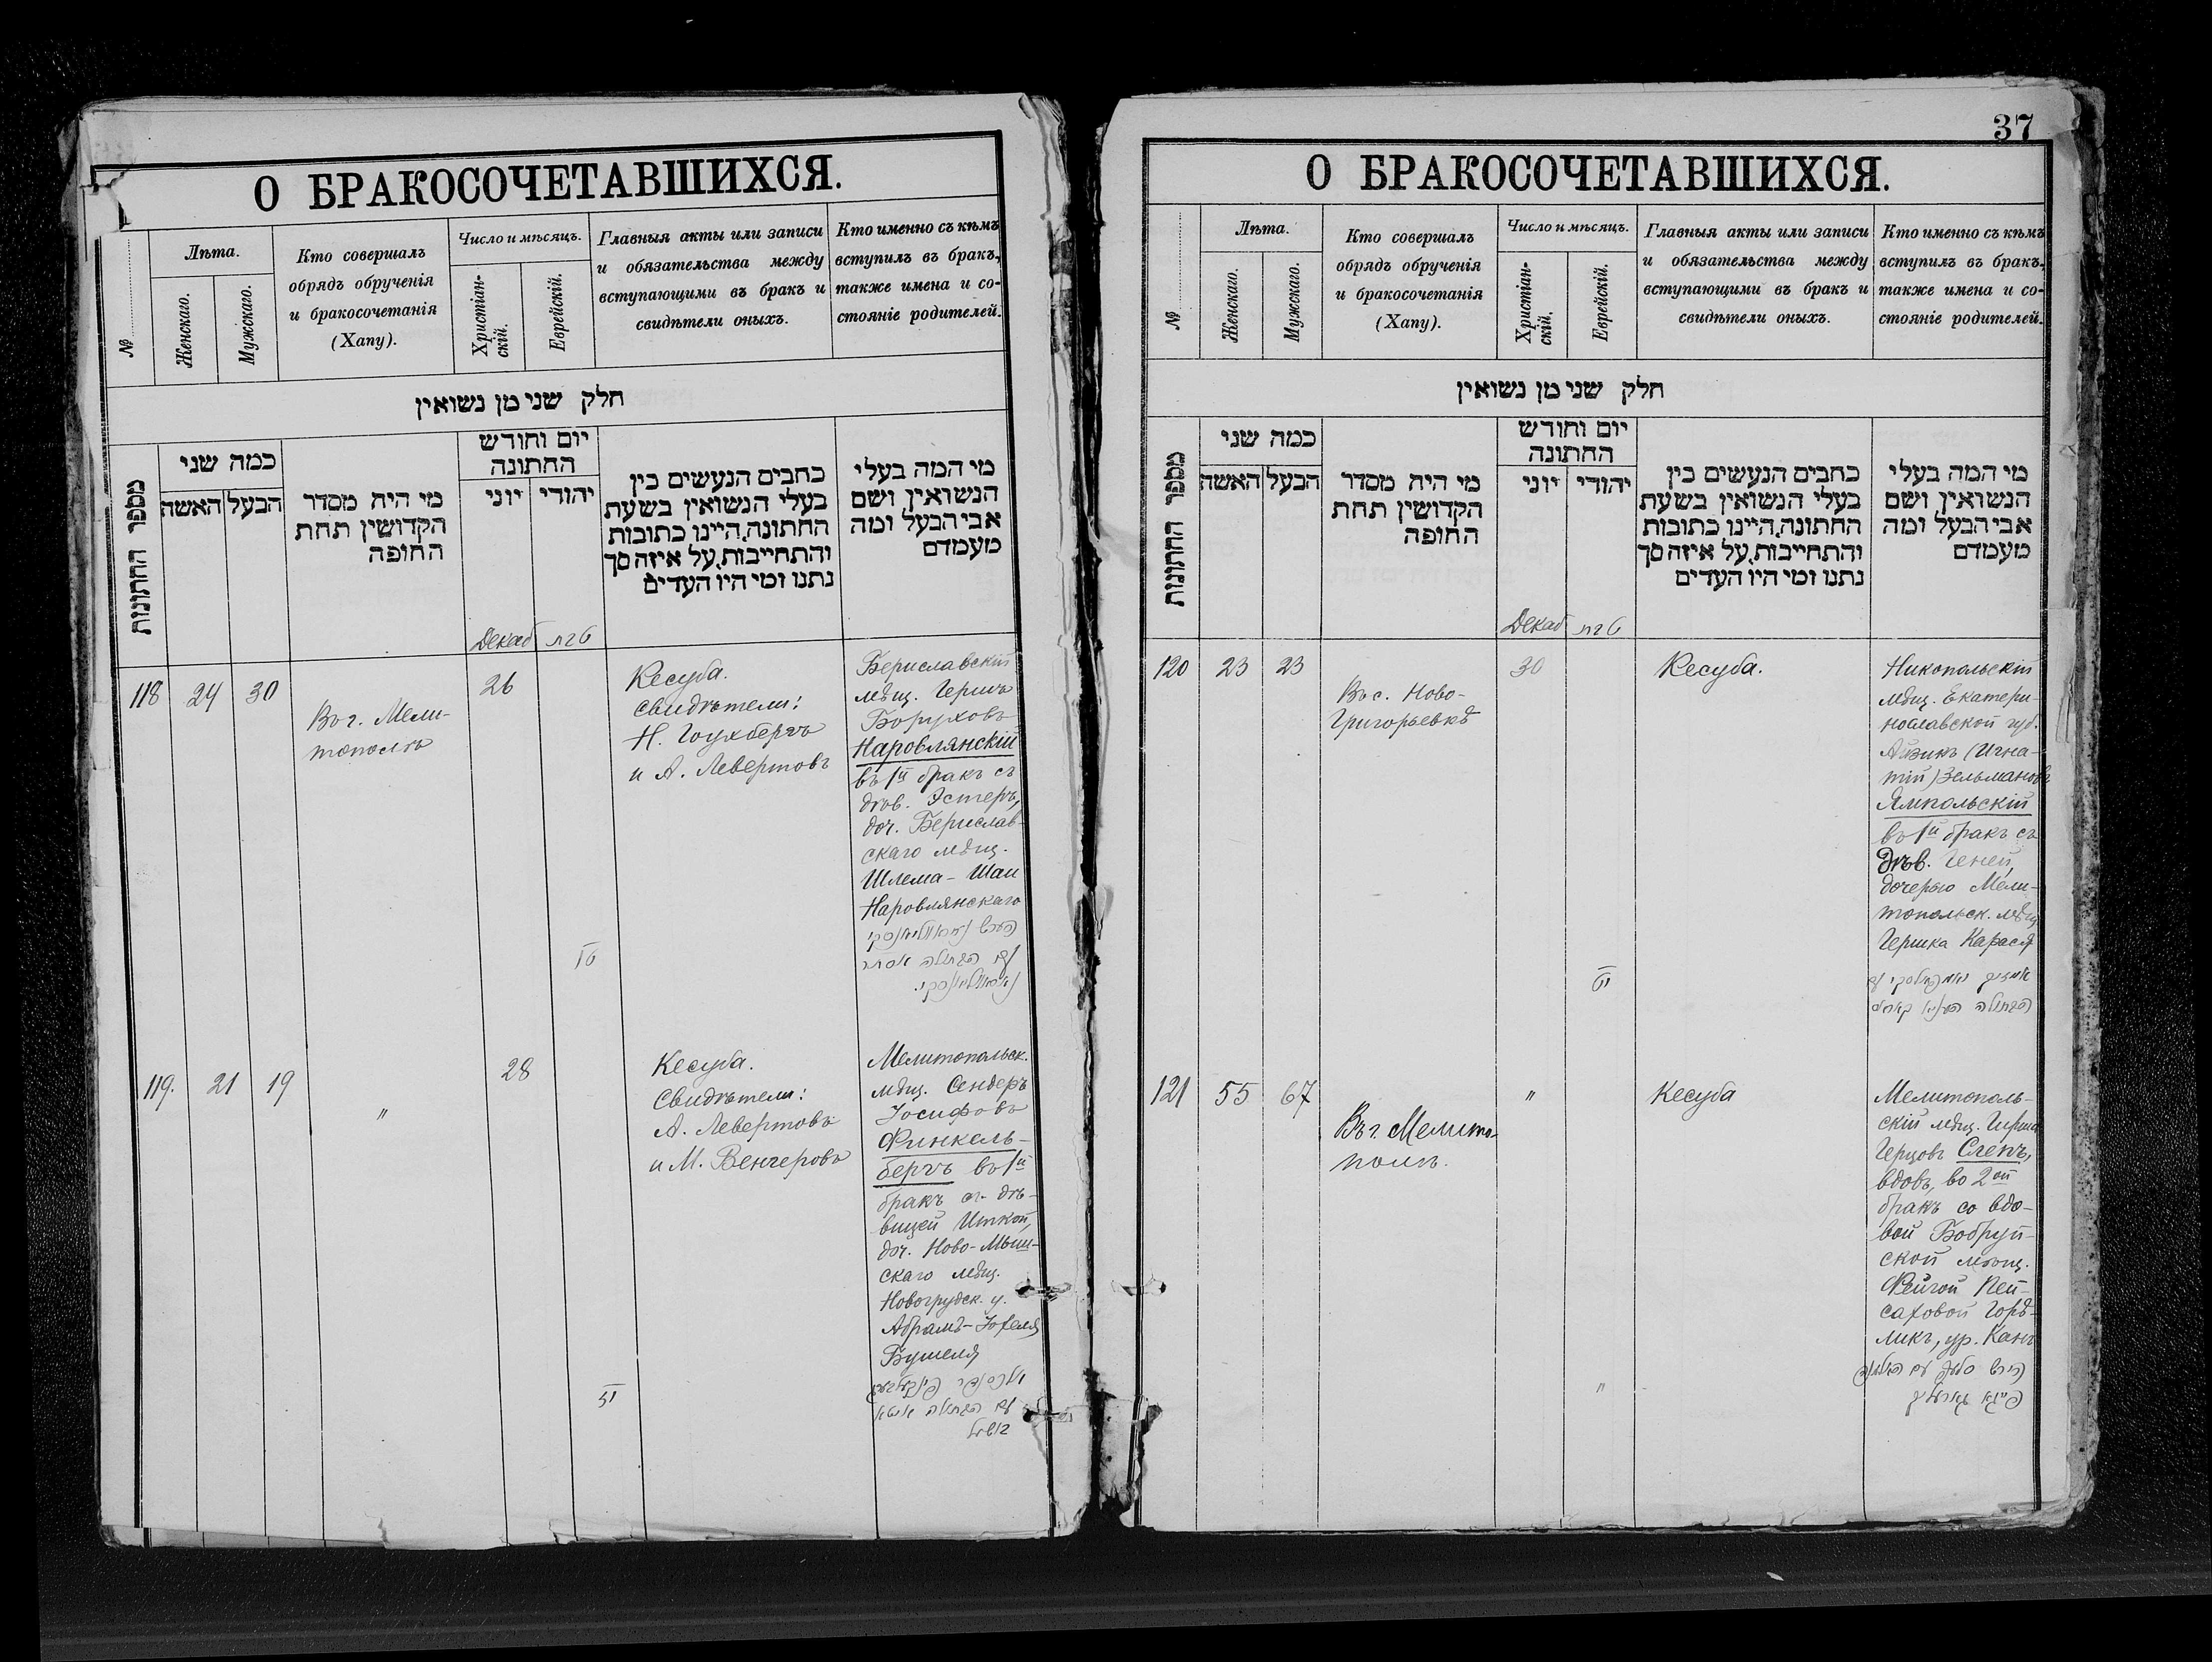 О БРАКОСОЧЕТАВШИХСЯ.
№
Лѣта.
Женскаго.
Мужскаго.
Кто совершалъ
обрядъ обрученія
и бракосочетанія
(Хапу).
Число и мѣсяцъ.
Христіан-
скій.
Еврейскій.
Главныя акты или записи
и обязательства между
вступающими въ бракъ и
свидѣтели оныхъ.
Кто именно съ кѣмъ
вступилъ въ бракъ,
также имена и со-
стояніе родителей.
חלק שני מן נשואין
מספר החתונות
כמה שני
הבעל
האשה
מי היה מסדר
הקדושין תחת
החופה
יום וחודש
החתונה
יוני
יהודי
כתבים הנעשים בין
בעלי הנשואין בשעת
החתונה, היינו כתובות
והתחייבות, על איזה סך
נתנו ומי היו העדים
מי המה בעלי
הנשואין ושם
אבי הבעל ומה
מעמדם
Декаб
טבת
118
24
30
Въ г. Мели-
тополѣ
26
Кесуба.
Свидѣтели:
и А. Левертовъ
Бериславскій
мѣщ. Гершъ
Боруховъ
Наровлянскій
въ 1й бракъ съ
дѣв. Эстеръ,
доч. Берислав-
скаго мѣщ.
Шлема-Шаи
Наровлянскаго
הירש נאראוולianסקי
עם הבתולה אסתר
119.
21
19
"
28
Кесуба.
Свидѣтели:
А. Левертовъ
и М. Венгеровъ
Мелитопольск.
мѣщ. Сендеръ
Іосифовъ
Финкель-
бергъ въ 1й
бракъ съ дѣ-
вицей Иткой,
доч. Ново-Мыш-
скаго мѣщ.
Новогрудск. у.
Абрамъ-Іохеля
Бушеля
עם הבתולה איטא
בושעל
37
О БРАКОСОЧЕТАВШИХСЯ.
№
Лѣта.
Женскаго.
Мужскаго.
Кто совершалъ
обрядъ обрученія
и бракосочетанія
(Хапу).
Число и мѣсяцъ.
Христіан-
скій.
Еврейскій.
Главныя акты или записи
и обязательства между
вступающими въ бракъ и
свидѣтели оныхъ.
Кто именно съ кѣмъ
вступилъ въ бракъ,
также имена и со-
стояніе родителей.
חלק שני מן נשואין
מספר החתונות
כמה שני
הבעל
האשה
מי היה מסדר
הקדושין תחת
החופה
יום וחודש
החתונה
יוני
יהודי
כתבים הנעשים בין
בעלי הנשואין בשעת
החתונה, היינו כתובות
והתחייבות, על איזה סך
נתנו ומי היו העדים
מי המה בעלי
הנשואין ושם
אבי הבעל ומה
מעמדם
Декаб
טבת
120
23
23
Въ с. Ново-
Григорьевкѣ
30
Кесуба.
Никопольскій
мѣщ. Екатери-
нославской губ.
Айзикъ (Игна-
тій) Зельмановъ
Ямпольскій
въ 1й бракъ съ
дѣв. Геней,
дочерью Мели-
топольск. мѣщ.
Гершка Карася
אייזיק יאמפאלסקי עם
הבתולה העניא קאראס
121
55
67
Въ г. Мелито-
полѣ.
"
Кесуба
Мелитополь-
скій мѣщ. Гирша
Герцовъ Слепъ,
вдовъ, во 2ой
бракъ со вдо-
вой Бобруй-
ской мѣщ.
Фейгой Пей-
саховой Горѣ-
ликъ, ур. Канъ
הירש סלעפ עם האלמנה
פייגא גארעליק
"